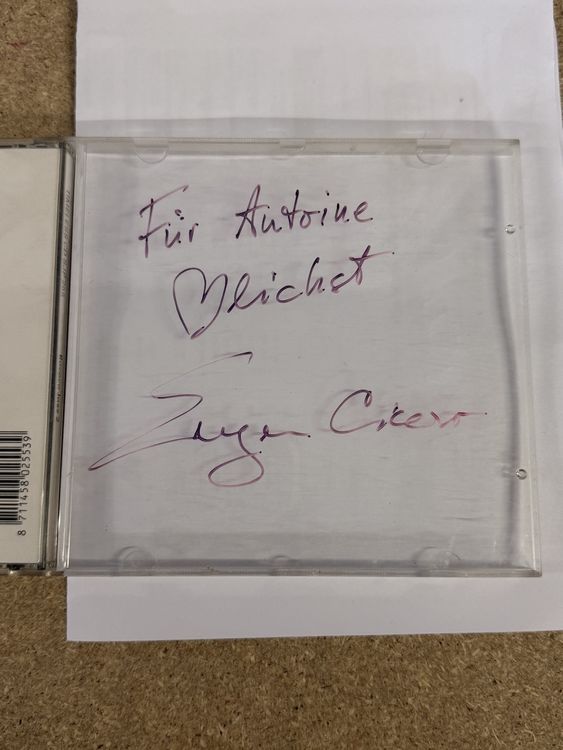 Für Antoine
♡lichst
Eugen Cicero
8 711458 025539